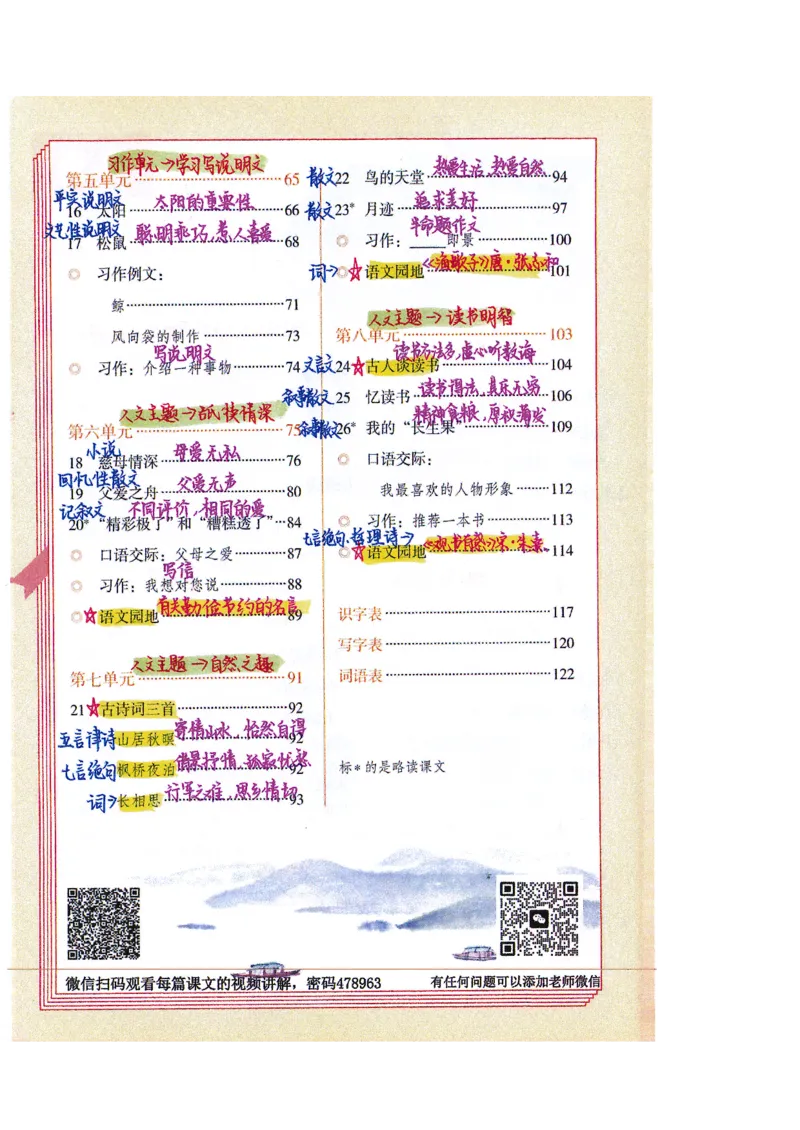 习作单元→学习写说明文
第五单元 65
平实说明文
16 太阳 太阳的重要性 66
文艺性说明文
17 松鼠 聪明乖巧,惹人喜爱 68
习作例文:
鲸 71
风向袋的制作 73
写说明文
习作:介绍一种事物 74
人文主题→舐犊情深
第六单元 75
小说
18 慈母情深 母爱无私 76
回忆性散文
19 父爱之舟 父爱无声 80
记叙文 不同评价,相同的爱
20* “精彩极了”和“糟糕透了” 84
口语交际:父母之爱 87
写信
习作:我想对您说 88
☆语文园地 有关勤俭节约的名言 89
人文主题→自然之趣
第七单元 91
21☆古诗词三首 92
五言律诗 山居秋暝 寄情山水,怡然自得 92
七言绝句 枫桥夜泊 借景抒情,孤寂忧愁 92
词→长相思 行军之难,思乡情切 93
散文22 鸟的天堂 热爱生活,热爱自然 94
散文23* 月迹 追求美好 97
半命题作文
习作:____即景 100
词→☆语文园地 《渔歌子》唐·张志和 101
人文主题→读书明智
第八单元 103
文言文24☆古人谈读书 读书方法多,虚心听教诲 104
叙事散文25 忆读书 读书得法,其乐无穷 106
叙事散文26* 我的“长生果” 精神食粮,厚积薄发 109
口语交际:
我最喜欢的人物形象 112
习作:推荐一本书 113
七言绝句·哲理诗→
☆语文园地 《观书有感》宋·朱熹 114
识字表 117
写字表 120
词语表 122
标*的是略读课文
微信扫码观看每篇课文的视频讲解,密码478963
有任何问题可以添加老师微信